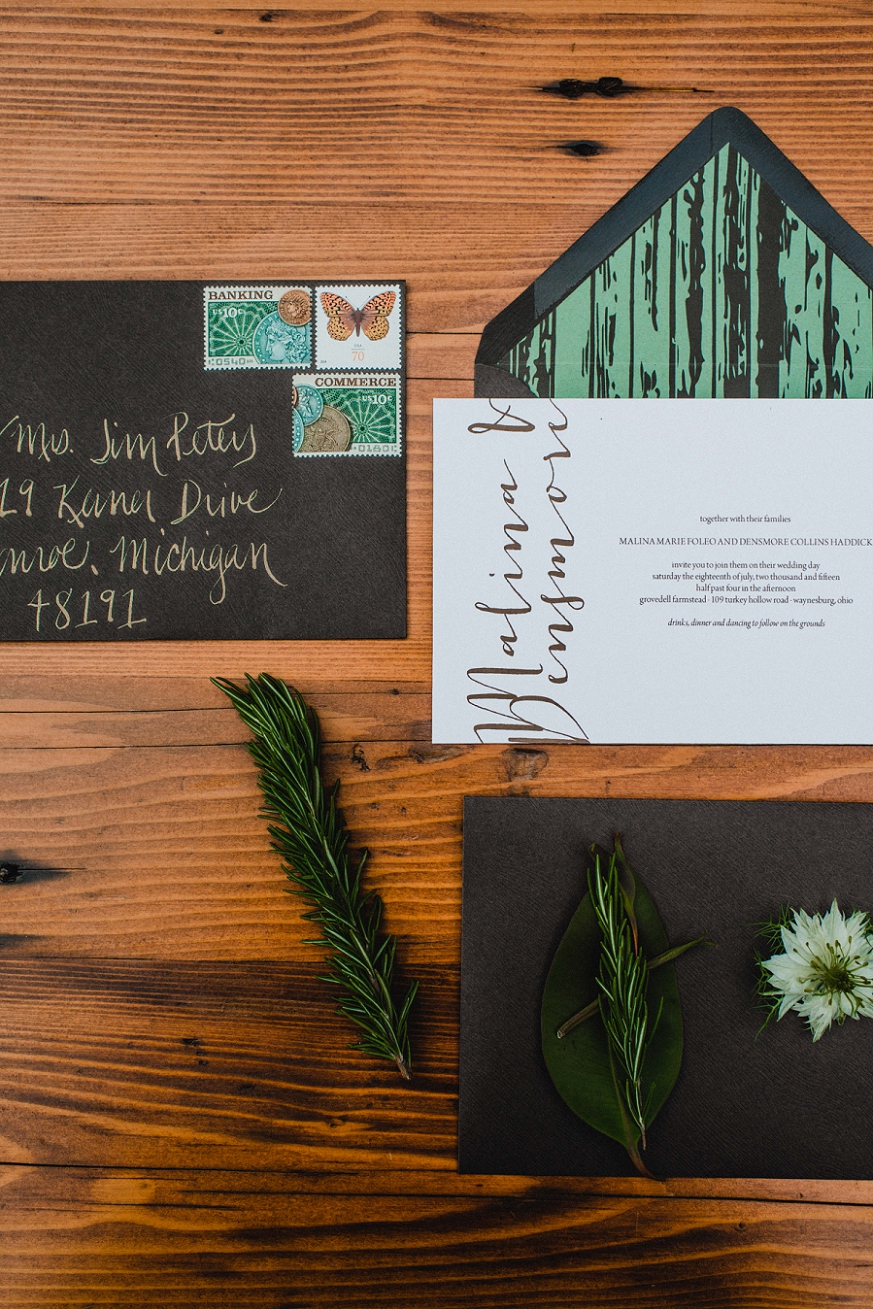 BANKING
US 10c
USA
70
COMMERCE
US 10c
Mrs. Jim Peters
19 Drive
Michigan
48191
Malina &
Densmore
together with their families
MALINA MARIE FOLEO AND DENSMORE COLLINS HADDICK
invite you to join them on their wedding day
saturday the eighteenth of july, two thousand and fifteen
half past four in the afternoon
grovedell farmstead · 109 turkey hollow road · waynesburg, ohio
drinks, dinner and dancing to follow on the grounds